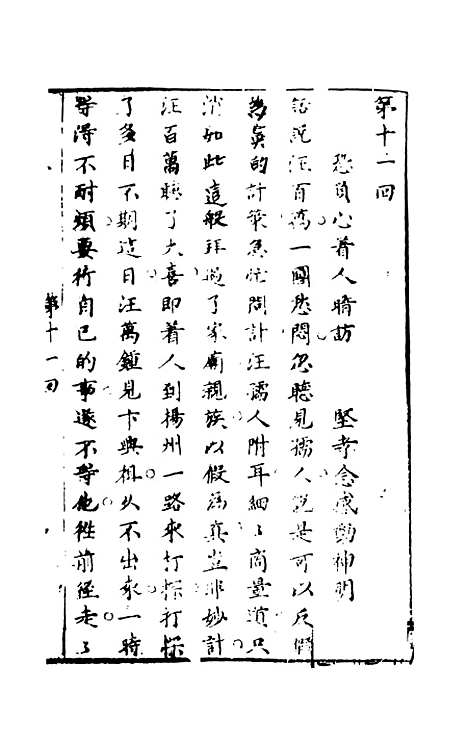 第十一回
恐負心着人暗訪　堅孝念感動神明
話說汪百萬一團愁悶忽聽見孺人說是可以反假
爲真的計策急忙問計汪孺人附耳細々商量道只
消如此這般拜過了家廟親族以假爲真豈非妙計
汪百萬聽了大喜即着人到揚州一路來打探打探
了多日不期這日汪萬鍾見卞與相從不出來一時
等得不耐煩要行自已的事遂不等他牲前徑走了
第十一回